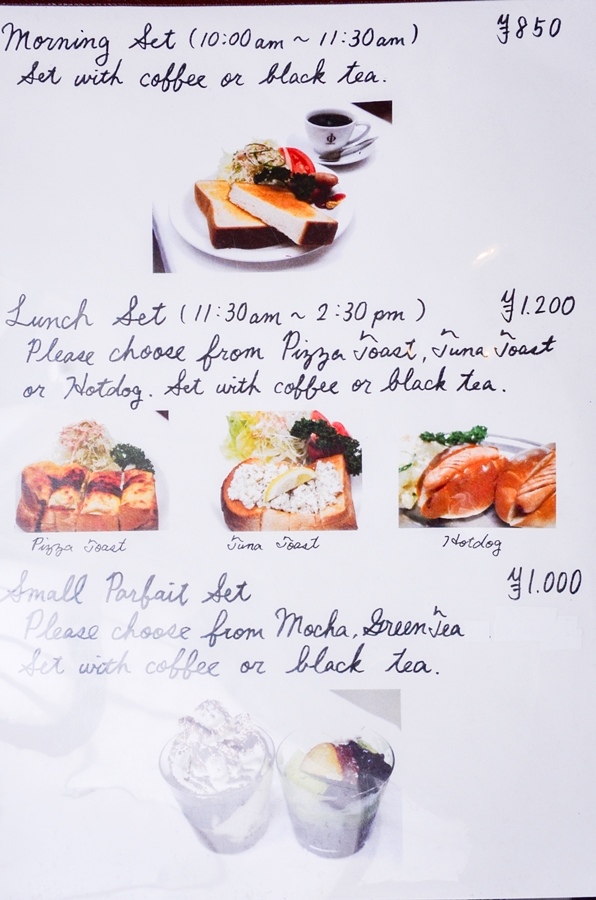 Morning Set (10:00am ~ 11:30am) ¥850
Set with coffee or black tea.
Lunch Set (11:30am ~ 2:30pm) ¥1.200
Please choose from Pizza Toast, Tuna Toast
or Hotdog. Set with coffee or black tea.
Pizza Toast
Tuna Toast
Hotdog
Small Parfait Set ¥1.000
Please choose from Mocha, Green Tea
Set with coffee or black tea.